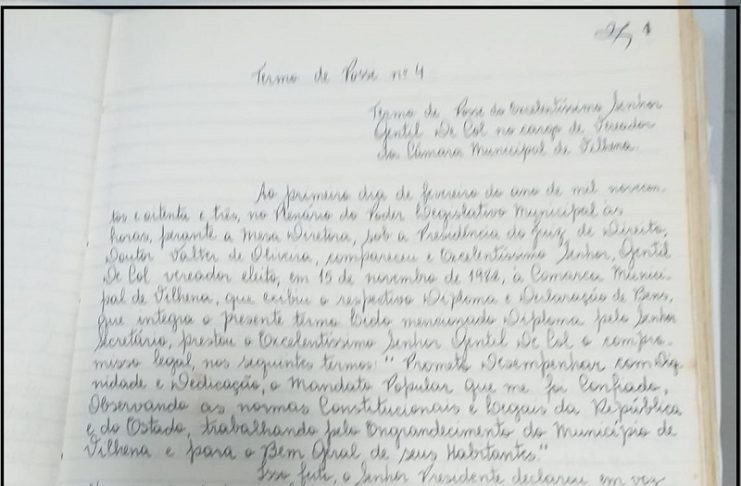 Termo de Posse nº 4
Termo de Posse do Excelentíssimo Senhor
Gentil De Col no cargo de Vereador
da Câmara Municipal de Vilhena.
Ao primeiro dia de fevereiro do ano de mil novicen-
tos e oitenta e três, no Plenário do Poder Legislativo Municipal às
horas, perante a Mesa Diretora, sob a Presidência do Juiz de Direito,
Doutor Valter de Oliveira, compareceu o Excelentíssimo Senhor, Gentil
De Col vereador eleito, em 15 de novembro de 1982, à Comarca Munici-
pal de Vilhena, que exibiu o respectivo Diploma e Declaração de Bens,
que integra o presente termo. Lido mencionado Diploma pelo Senhor
Secretário, prestou o Excelentíssimo Senhor Gentil De Col o compro-
misso legal, nos seguintes termos: "Prometo Desempenhar com Dig-
nidade e Dedicação, o Mandato Popular que me foi Confiado,
Observando as normas Constitucionais e Legais da República
e do Estado, trabalhando pelo Engrandecimento do Município de
Vilhena e para o Bem Geral de seus Habitantes."
Isso feito, o Senhor Presidente declarou em voz